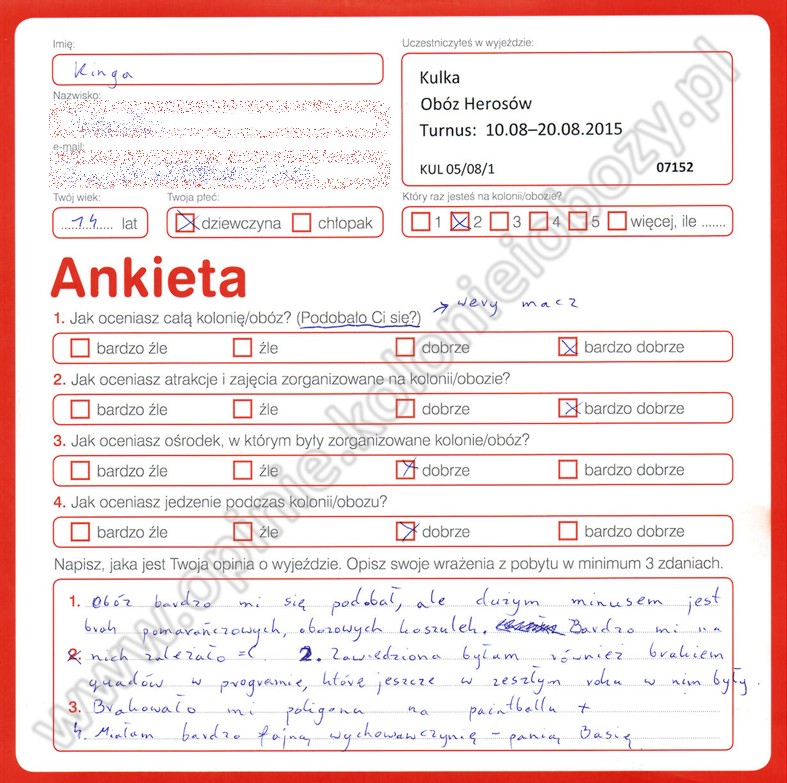 Imię:
Kinga
Uczestniczyłeś w wyjeździe:
Kulka
Obóz Herosów
Turnus: 10.08–20.08.2015
KUL 05/08/1 07152
Nazwisko:
e-mail:
Twój wiek:
14 lat
Twoja płeć:
dziewczyna chłopak
Który raz jesteś na kolonii/obozie?
1 2 3 4 5 więcej, ile .......
Ankieta
→ wery macz
1. Jak oceniasz całą kolonię/obóz? (Podobało Ci się?)
bardzo źle źle dobrze bardzo dobrze
2. Jak oceniasz atrakcje i zajęcia zorganizowane na kolonii/obozie?
bardzo źle źle dobrze bardzo dobrze
3. Jak oceniasz ośrodek, w którym były zorganizowane kolonie/obóz?
bardzo źle źle dobrze bardzo dobrze
4. Jak oceniasz jedzenie podczas kolonii/obozu?
bardzo źle źle dobrze bardzo dobrze
Napisz, jaka jest Twoja opinia o wyjeździe. Opisz swoje wrażenia z pobytu w minimum 3 zdaniach.
1. Obóz bardzo mi się podobał, ale dużym minusem jest
brak pomarańczowych, obozowych koszulek. Bardzo mi na
2. nich zależało =( 2. Zawiedziona byłam również brakiem
quadów w programie, które jeszcze w zeszłym roku w nim były.
3. Brakowało mi poligonu na paintballu +
4. Miałam bardzo fajną wychowawczynię - panią Basię
www.opinie.kolonieiobozy.pl